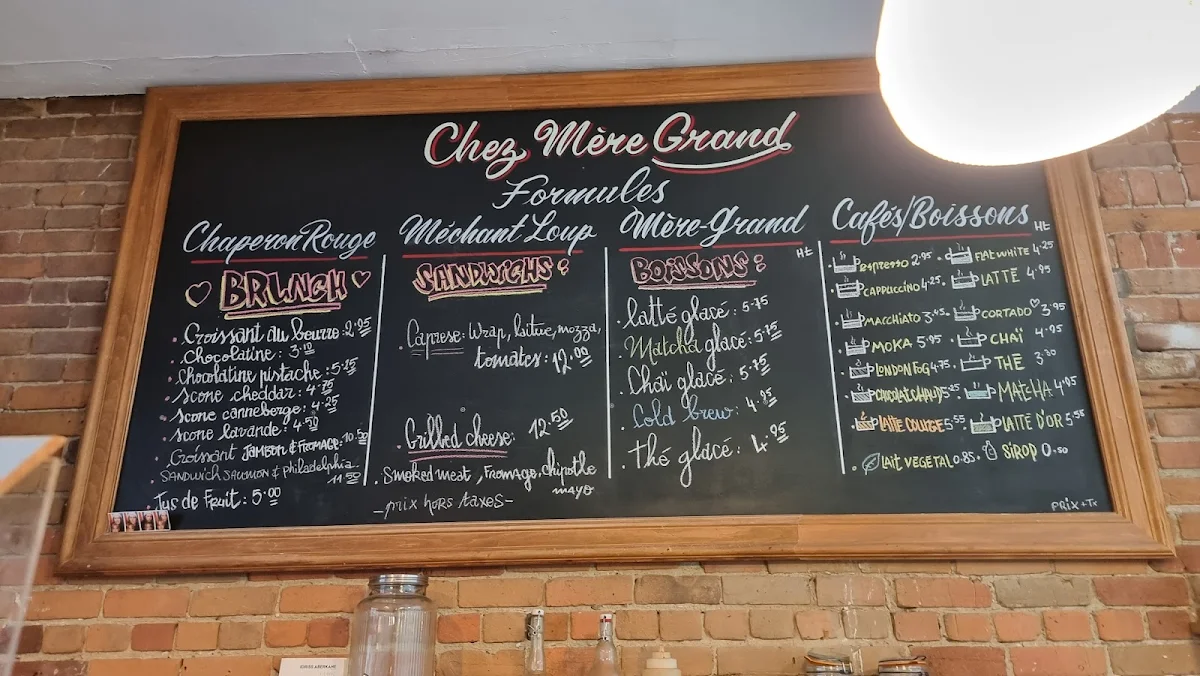 Chez Mère Grand
Formules
Chaperon Rouge
BRUNCH
Croissant au beurre: 2.95
Chocolatine: 3.10
Chocolatine pistache: 5.25
Scone cheddar: 4.75
Scone canneberge: 4.25
Scone lavande: 4.50
Croissant JAMBON & FROMAGE: 10.50
SANDWICH SAUMON & philadelphia
11.50
Jus de Fruit: 5.00
Méchant Loup
SANDWICHS:
Caprese: Wrap, laitue, mozza,
tomates: 12.00
Grilled cheese: 12.50
Smoked meat, Fromage, chipotle
mayo
-prix hors taxes-
Mère-Grand
Ht
BOISSONS:
latté glacé: 5.75
Matcha glacé: 5.75
Chaï glacé: 5.75
Cold brew: 4.95
Thé glacé: 4.95
Cafés/Boissons
Ht
Espresso 2.95 FLAT WHITE 4.25
CAPPUCCINO 4.25 LATTE 4.95
MACCHIATO 3.45 CORTADO 3.95
MOKA 5.95 CHAÏ 4.95
LONDON FOG 4.75 THÉ
CHOCOLAT CHAUD 5.25 MATCHA 4.95
LATTE COURGE 5.55 LATTÉ D'OR 5.55
LAIT VEGETAL 0.85 SIROP 0.50
PRIX + Tx